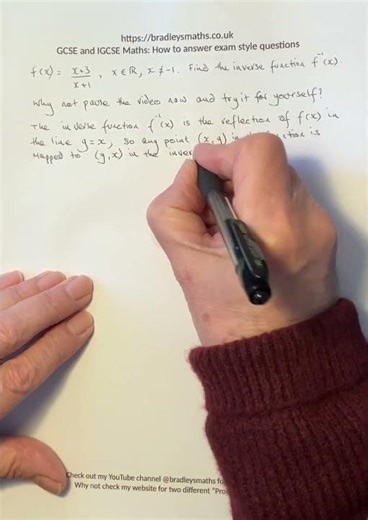 https://bradleysmaths.co.uk
GCSE and IGCSE Maths: How to answer exam style questions
f(x) = x+3/x+1 , x ∈ ℝ, x ≠ -1. Find the inverse function f⁻¹(x)
Why not pause the video now and try it for yourself?
The inverse function f⁻¹(x) is the reflection of f(x) in
the line y=x, so any point (x,y) in is
mapped to (y,x) in the inver
Check out my YouTube channel @bradleysmaths fo
Why not check my website for two different "Pro